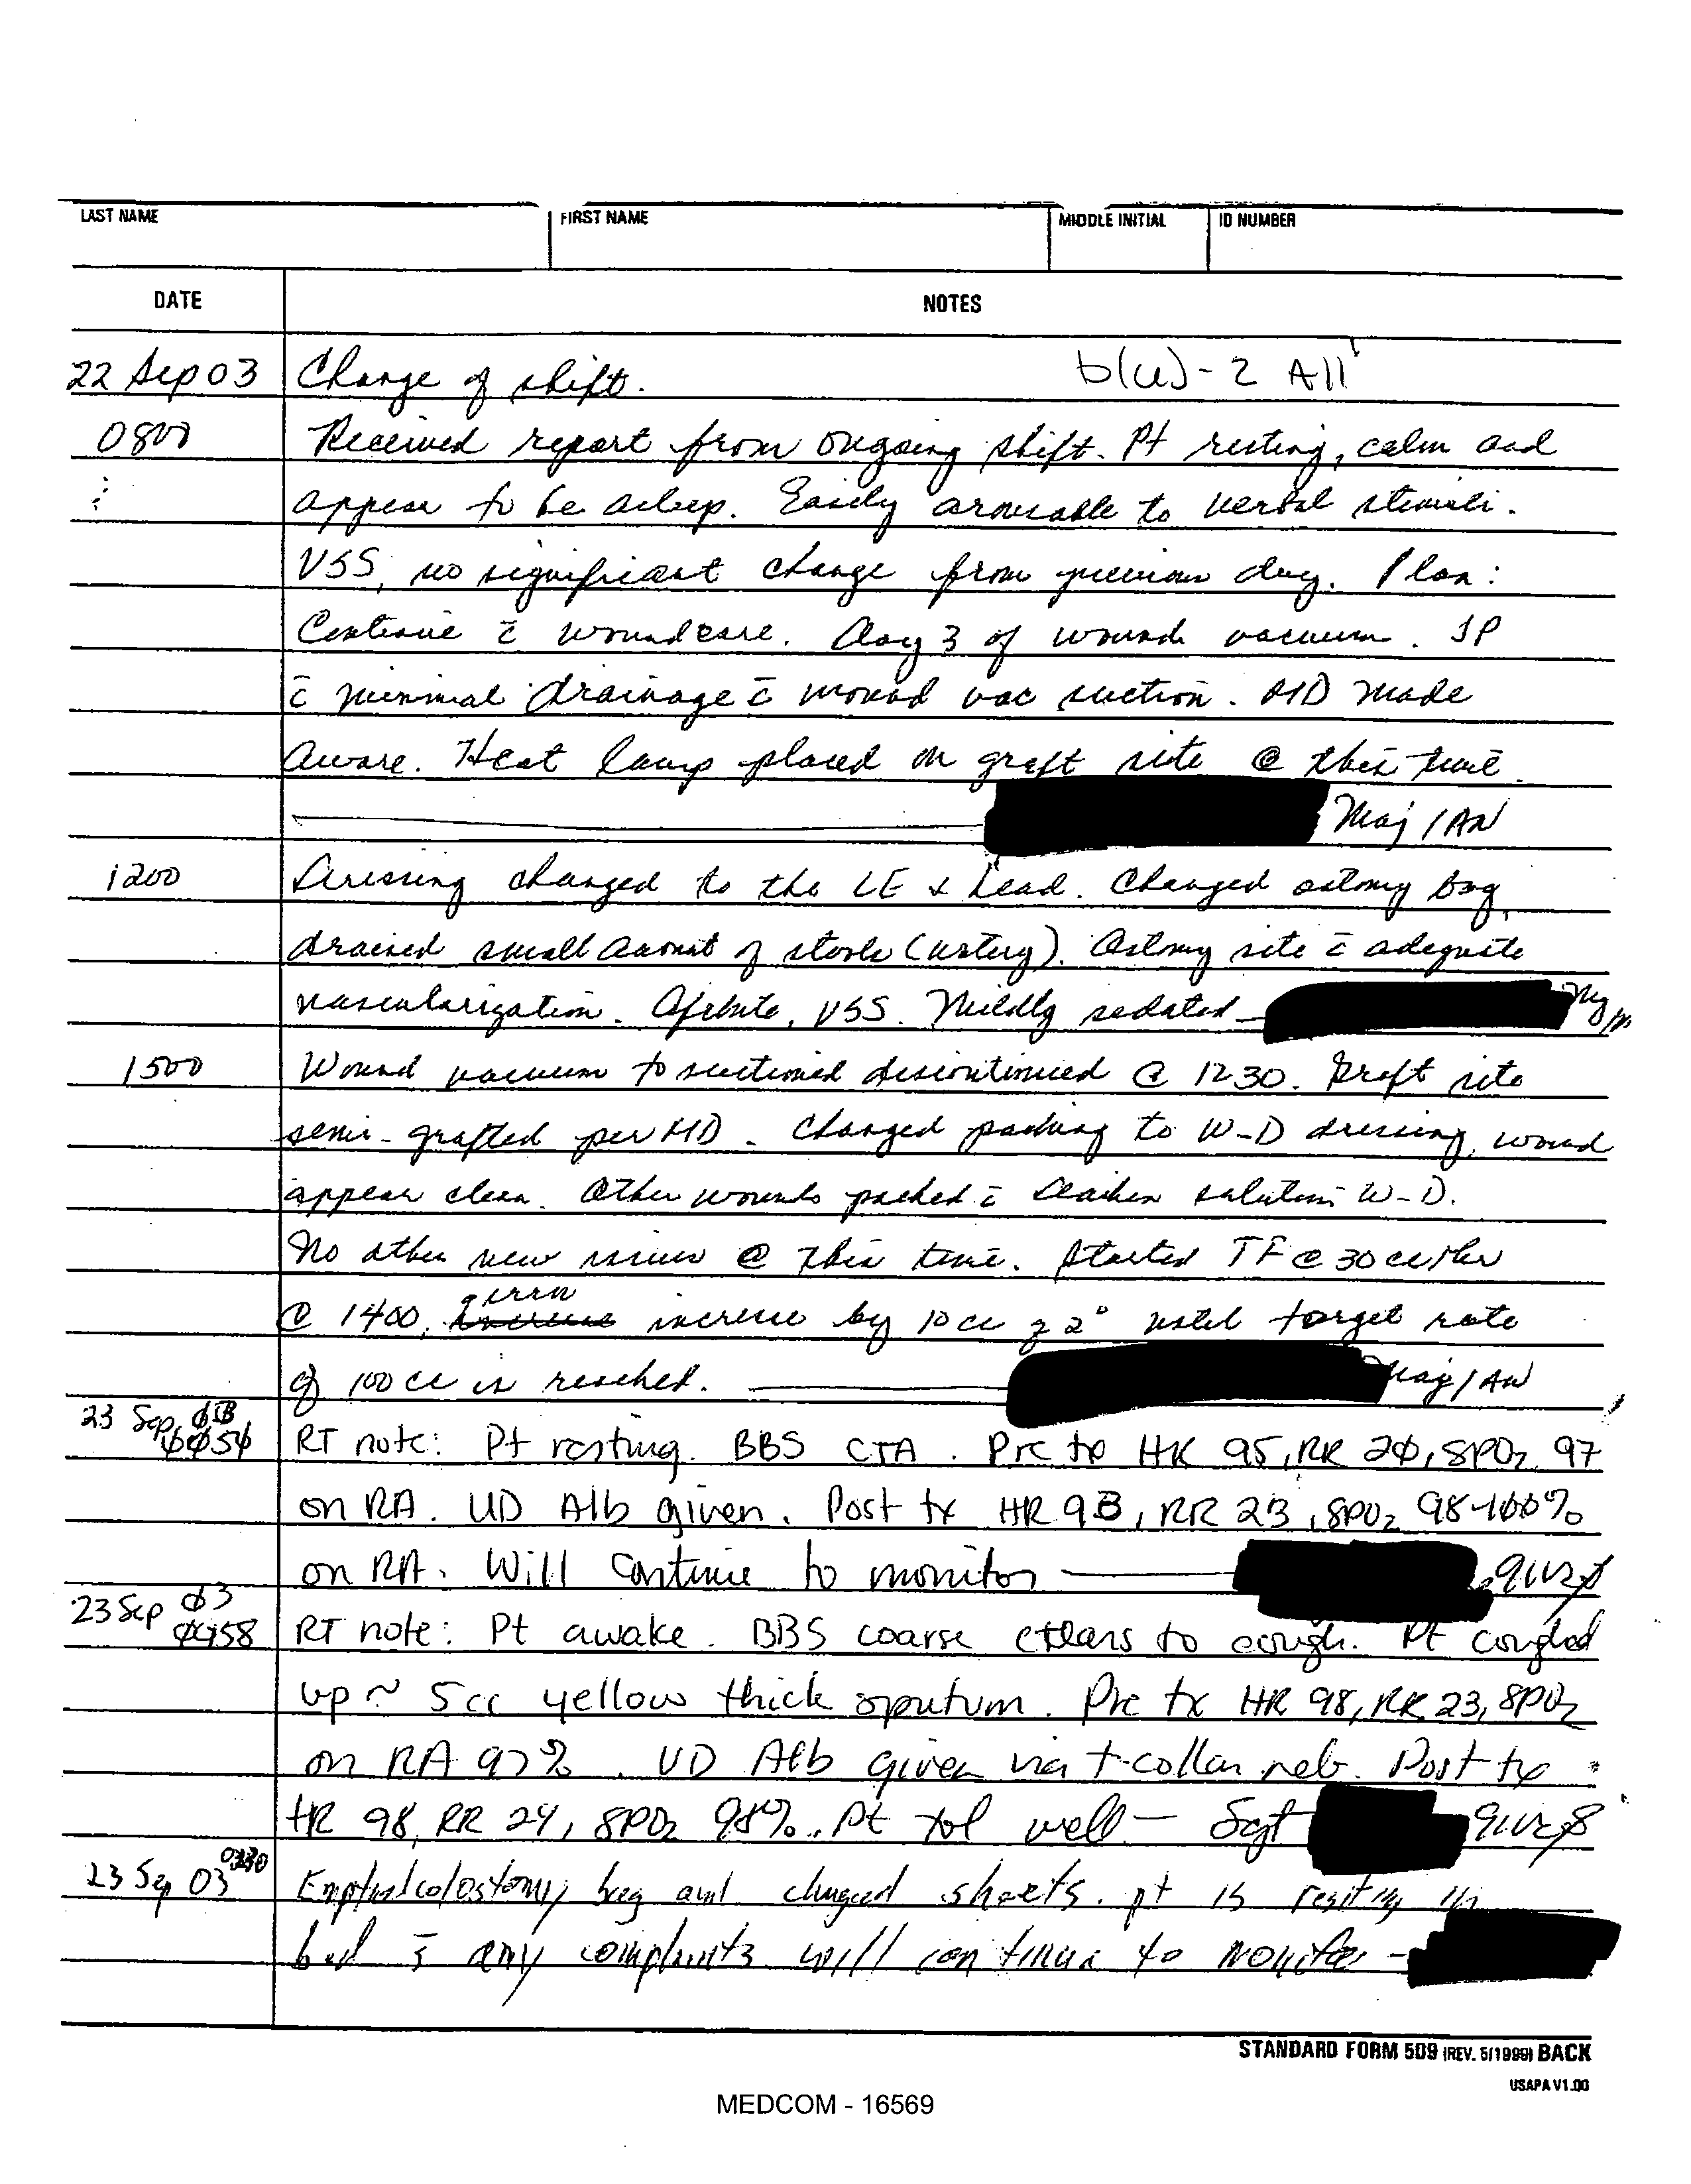 LAST NAME FIRST NAME MIDDLE INITIAL ID NUMBER
DATE NOTES
22 Sep 03 Change of shift. b(6)-2 All
0800 Received report from ongoing shift. Pt resting, calm and
appear to be asleep. Easily arousable to verbal stimuli.
VSS, no significant change from previous day. Plan:
Continue c̄ wound care. Day 3 of wound vacuum. JP
c̄ minimal drainage c̄ wound vac suction. MD made
aware. Heat lamp placed on graft site @ this time.
Maj / AN
1200 Dressing changed to the LE & head. Changed ostomy bag,
drained small amount of stools (watery). Ostomy site c̄ adequate
vascularization. Afebrile, VSS. Mildly sedated
1500 Wound vacuum to suctioned discontinued @ 1230. Graft site
semi-grafted per MD. Changed packing to W-D dressing, wound
appear clean. Other wounds packed c̄ solution W-D.
No other new issues @ this time. Started TF @ 30 cc/hr
@ 1400, increase by 10 cc q 2° until target rate
of 100 cc is reached. Maj / AN
23 Sep 03
0050 RT note: Pt resting. BBS CTA. Pre tx HR 95, RR 20, SPO2 97
on RA. UD Alb given. Post tx HR 93, RR 23, SPO2 98-100%
on RA. Will continue to monitor
23 Sep 03
RT note: Pt awake. BBS coarse clears to cough. Pt coughed
up ~ 5cc yellow thick sputum. Pre tx HR 98, RR 23, SPO2
on RA 97%. UD Alb given via t-collar neb. Post tx
HR 98, RR 24, SPO2 98%. Pt tol well — Sgt
23 Sep 03 Emptied colostomy bag and changed sheets. pt is resting in
bed s̄ any complaints will continue to monitor -
STANDARD FORM 509 (REV. 5/1999) BACK
USAPA V1.00
MEDCOM - 16569